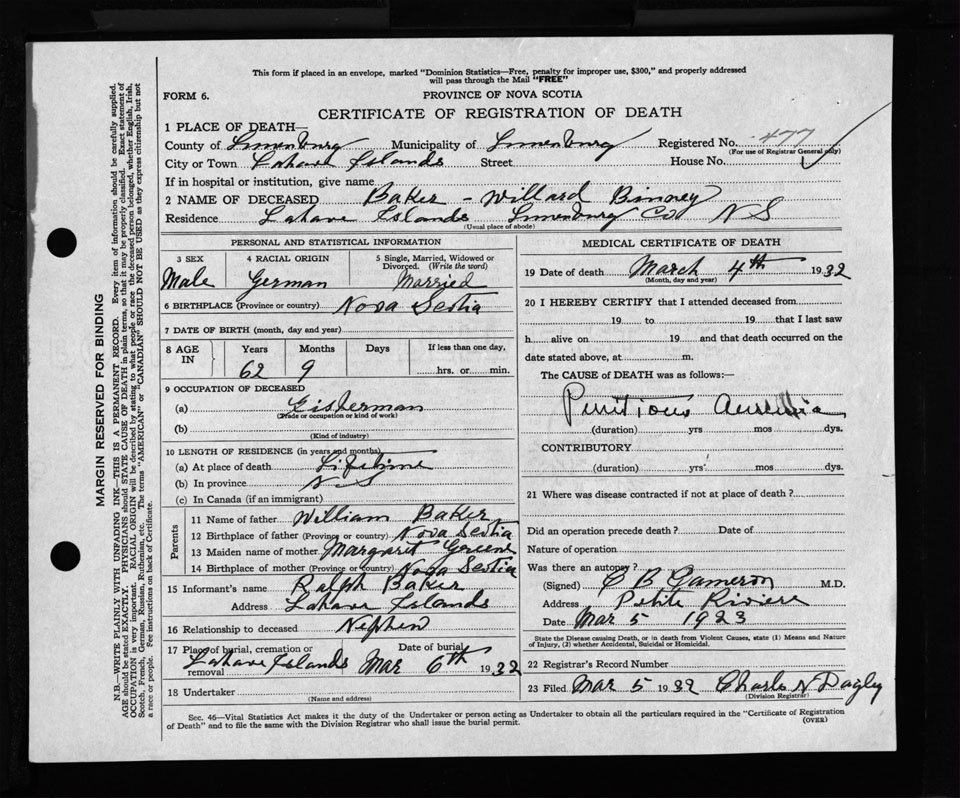 This form if placed in an envelope, marked "Dominion Statistics—Free, penalty for improper use, $300," and properly addressed
will pass through the Mail "FREE"
FORM 6.
PROVINCE OF NOVA SCOTIA
CERTIFICATE OF REGISTRATION OF DEATH
1 PLACE OF DEATH—
County of Lunenburg Municipality of Lunenburg Registered No. 477
(For use of Registrar General only)
City or Town Lahave Islands Street House No.
If in hospital or institution, give name
2 NAME OF DECEASED Baker - Willard Binney
Residence Lahave Islands Lunenburg Co NS
(Usual place of abode)
PERSONAL AND STATISTICAL INFORMATION
3 SEX 4 RACIAL ORIGIN 5 Single, Married, Widowed or
Divorced. (Write the word)
Male German Married
6 BIRTHPLACE (Province or country) Nova Scotia
7 DATE OF BIRTH (month, day and year)
8 AGE IN Years Months Days If less than one day,
62 9 hrs. or min.
9 OCCUPATION OF DECEASED
(a) Fisherman
(Trade or occupation or kind of work)
(b)
(Kind of industry)
10 LENGTH OF RESIDENCE (in years and months)
(a) At place of death Lifetime
(b) In province NS
(c) In Canada (if an immigrant)
Parents
11 Name of father William Baker
12 Birthplace of father (Province or country) Nova Scotia
13 Maiden name of mother Margaret
14 Birthplace of mother (Province or country) Nova Scotia
15 Informant's name Ralph Baker
Address Lahave Islands
16 Relationship to deceased Nephew
17 Place of burial, cremation or removal Date of burial
Lahave Islands Mar 6th 1932
18 Undertaker
(Name and address)
MEDICAL CERTIFICATE OF DEATH
19 Date of death March 4th 1932
(Month, day and year)
20 I HEREBY CERTIFY that I attended deceased from
19 to 19 that I last saw
h alive on 19 and that death occurred on the
date stated above, at m.
The CAUSE of DEATH was as follows:—
(duration) yrs mos dys.
CONTRIBUTORY
(duration) yrs mos dys.
21 Where was disease contracted if not at place of death ?
Did an operation precede death ? Date of
Nature of operation
Was there an autopsy ?
(Signed) C B Cameron M.D.
Address Petite Riviere
Date Mar 5 1923
State the Disease causing Death, or in death from Violent Causes, state (1) Means and Nature
of Injury, (2) whether Accidental, Suicidal or Homicidal.
22 Registrar's Record Number
23 Filed Mar 5 1932 Charles N
(Division Registrar)
Sec. 46—Vital Statistics Act makes it the duty of the Undertaker or person acting as Undertaker to obtain all the particulars required in the "Certificate of Registration
of Death" and to file the same with the Division Registrar who shall issue the burial permit.
(OVER)
MARGIN RESERVED FOR BINDING
N.B.—WRITE PLAINLY WITH UNFADING INK—THIS IS A PERMANENT RECORD. Every item of information should be carefully supplied.
AGE should be stated EXACTLY. PHYSICIANS should STATE CAUSE OF DEATH in plain terms, so that it may be properly classified. Exact statement of
OCCUPATION is very important. RACIAL ORIGIN will be described by stating to what people or race the deceased person belonged, whether English, Irish,
Scotch, French, German, Russian, Ruthenian, etc. The terms "AMERICAN" or "CANADIAN" SHOULD NOT BE USED as they express citizenship but not
a race or people. Fee instructions on back of Certificate.